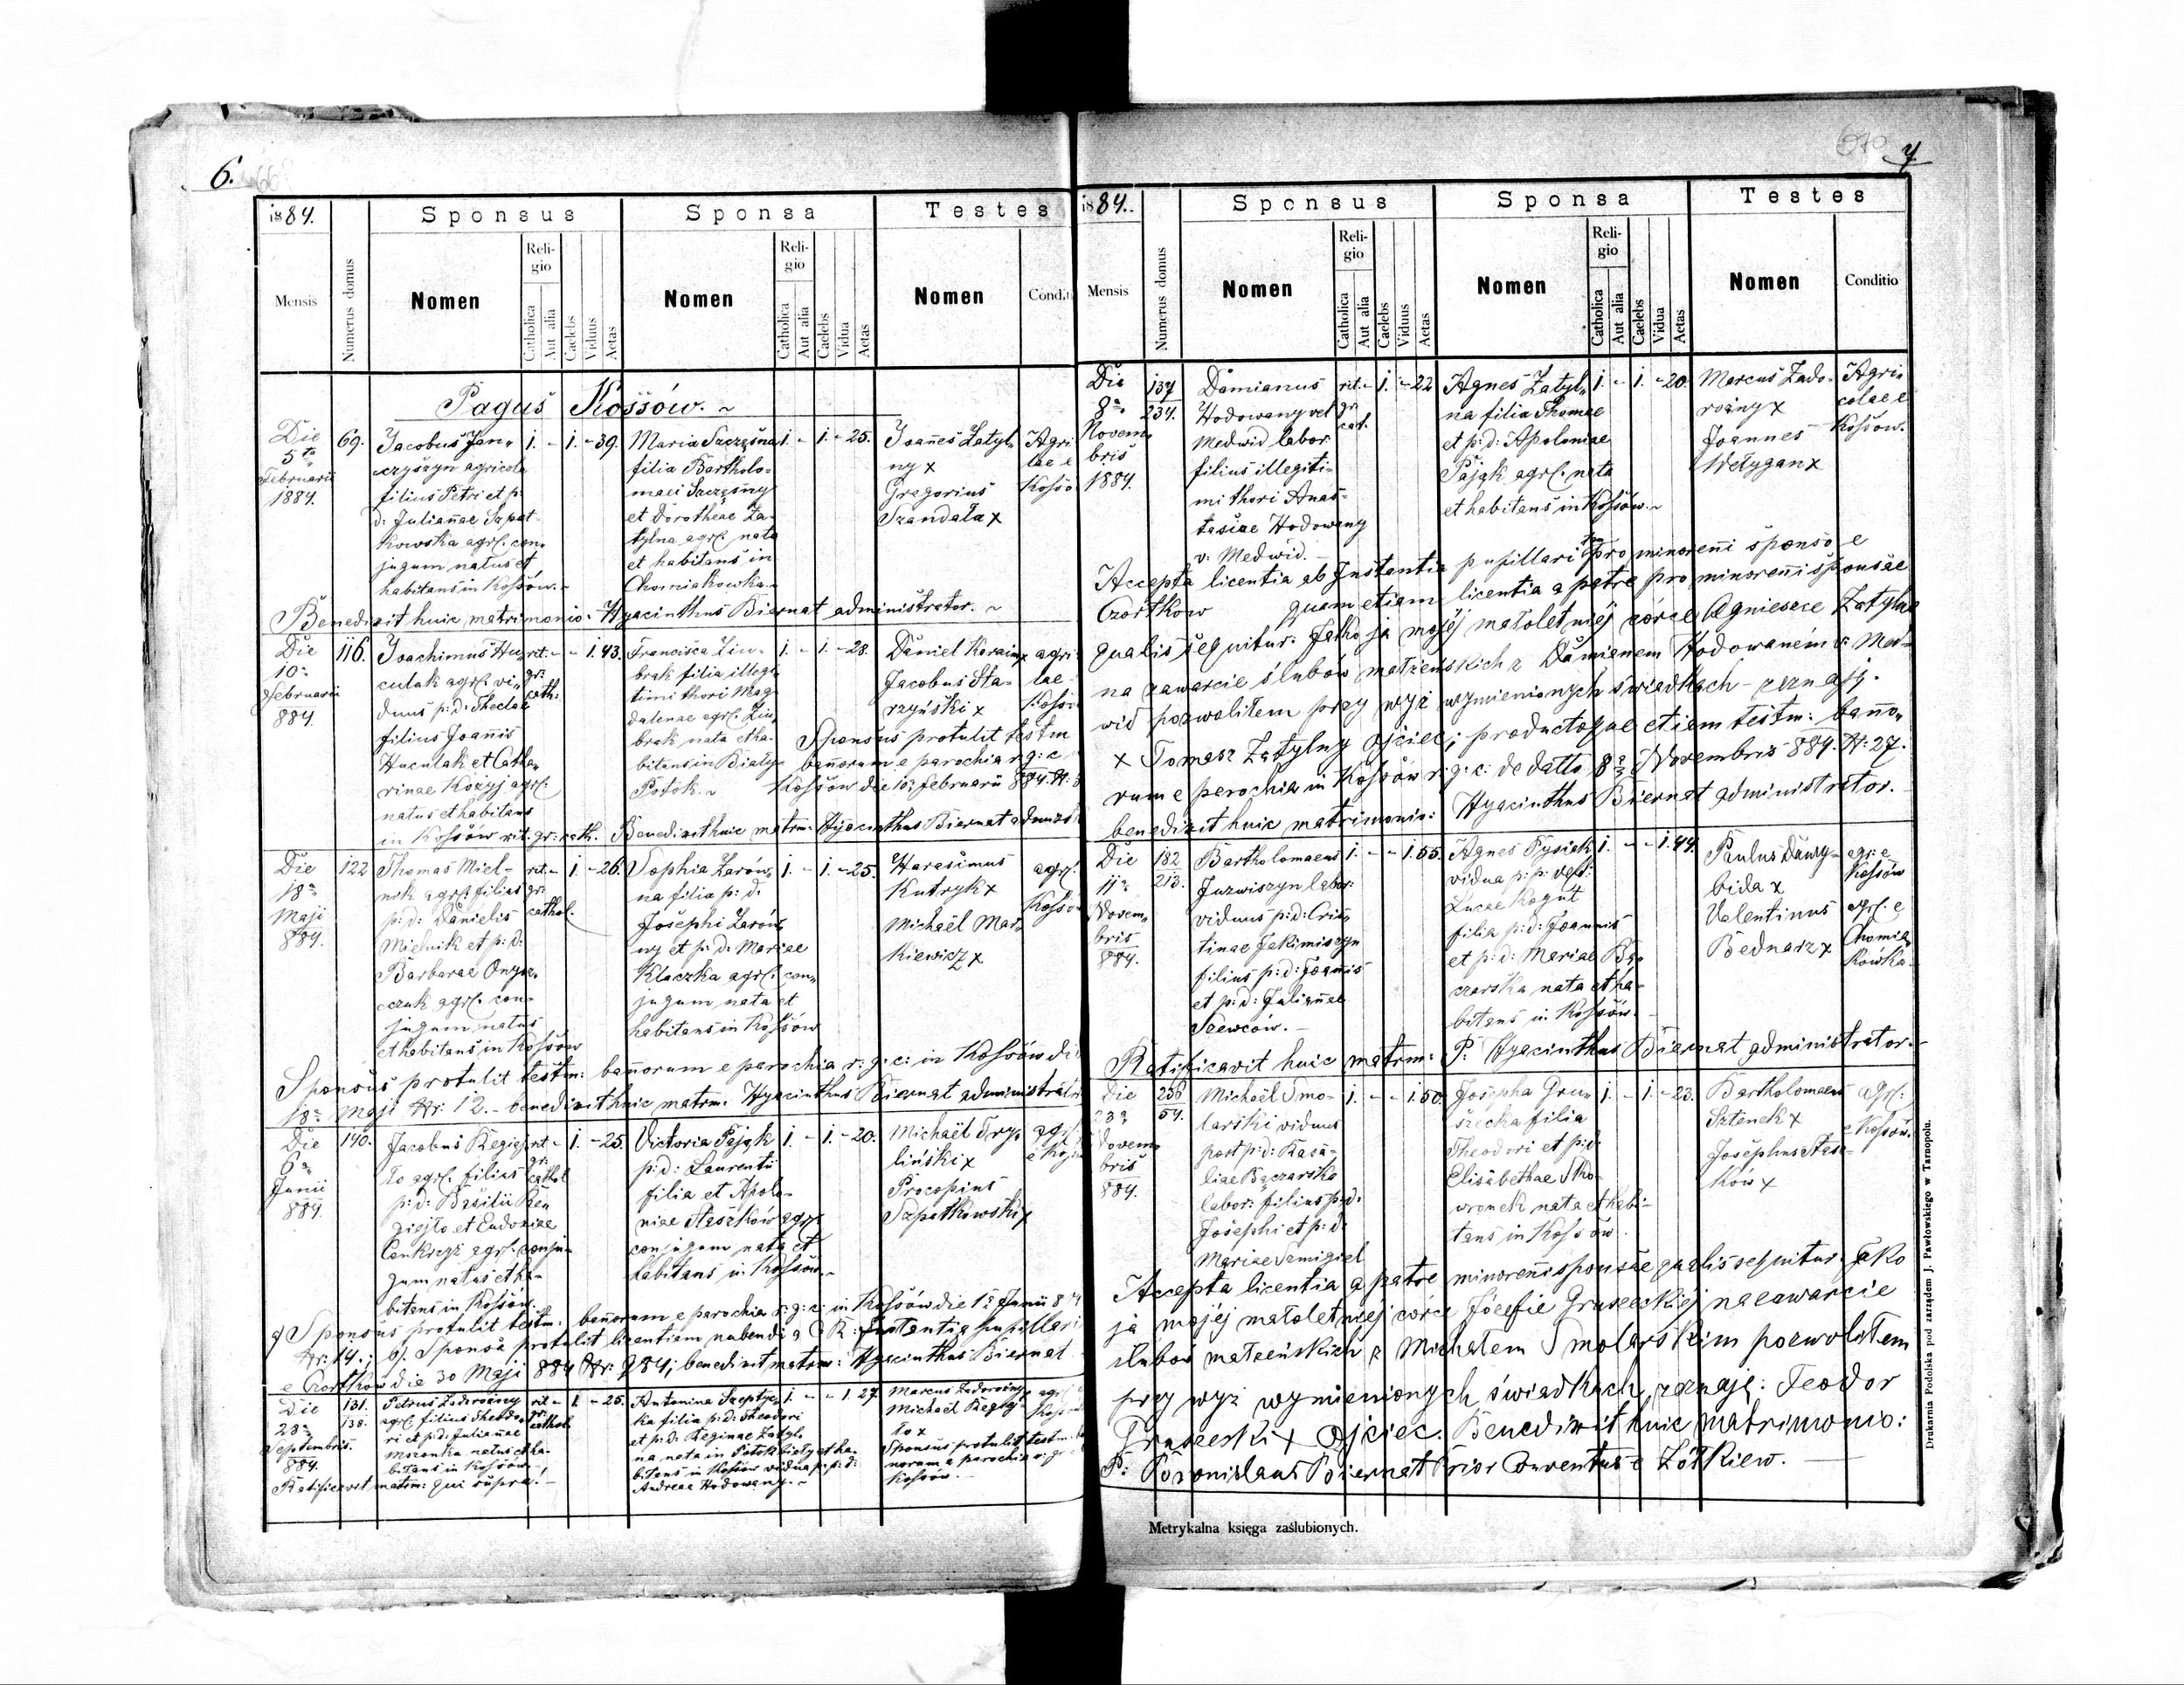 6.
1884.
Sponsus
Sponsa
Testes
Mensis
Numerus domus
Nomen
Religio
Catholica
Aut alia
Caelebs
Viduus
Aetas
Nomen
Religio
Catholica
Aut alia
Caelebs
Vidua
Aetas
Nomen
Pagus Kossów. ~
Die
5ta
Februarii
1884.
69.
Jacobus Jan„
czyszyn agricola
filius Petri et p:
d: Julianae Szpat-
kowska agrl. con„
jugum natus et
habitans in Kossów.~
1. - 1. - 39.
Maria Szczęsna
filia Bartholo-
maei Szczęsny
et Dorotheae Za-
tylna agrl. nata
et habitans in
Chomiakowka.~
1. - 1. - 25.
Joannes Zatyl„
ny x
Gregorius
Szandała x
Benedixit huic matrimonio: Hyacinthus Biernat administrator. ~
Die
10a
Februarii
884.
116.
Joachimus Hu„
culak agrl. vi„
duus p: d: Theclae
filius Joannis
Huculak et Catha„
rinae Kozyj agrl.
natus et habitans
in Kossów rit. gr: cath.
rit. - - 1. 43.
gr:
cath:
Francisca Ziu-
brak filia illegi-
timi thori Mag
dalenae agrl. Ziu„
brak nata et ha-
bitans in Biały
Potok. ~
1. - 1. - 28.
Daniel Karaim x
Jacobus Sta-
rzyński x
Sponsus protulit testm
bannorum e parochia r. g: c
Kossów die 10a februarii 884. N:
Benedixit huic matrm: Hyacinthus Biernat
Die
18a
Maji
884.
122
Thomas Miel-
nik agrl. filius
p: d: Danielis
Mielnik et p: d:
Barbarae Onysz„
czuk agrl. con-
jugum natus
et habitans in Kossów
rit. - 1. - 26.
gr:
cathol.
Sophia Zarów„
na filia p: d.
Josephi Zarów„
ny et p: d: Mariae
Kluczka agrl. con„
jugum nata et
habitans in Kossów
1. - 1. - 25.
Harasimus
Kutryk x
Michaël Mar„
kiewicz x
Sponsus protulit testm: bannorum e parochia r: g: c: in Kossów di
18a Maji Nr: 12. - benedixit huic matrm. Hyacinthus Biernat
Die
6a
Junii
884.
140.
Jacobus Kegiej„
ło agrl. filius
p: d: Basilii
et Eudoxiae
agrl. conju-
gum natus et ha-
bitans in Kossów.
rit - 1. - 25.
gr:
cathol
Victoria Pająk
p: d: Laurentii
filia et Apolo-
niae Staszków agrl.
conjugum nata et
habitans in Kossów.~
1. - 1. - 20.
Michaël Try„
liński x
Procopius
Szpatkowski x
a/ Sponsus protulit testm: bannorum e parochia r: g: c: in Kossów die 1a Junii 8
Nr: 14.; b/. Sponsa protulit licentiam nubendi a C. K: Instantia pupillari
e Czortków die 30 Maji 884 Nr: 984; benedixit matrm: Hyacinthus Biernat
Die
23a
Septembris.
884.
131.
138.
Petrus Zadorożny
agrl. filius Theodo„
ri et p: d: Julianae
natus et ha-
bitans in Kossów.
rit - 1. - 25.
gr:
cathol.
Antonina Szeptyc„
ka filia p: d: Theodori
et p: d: Reginae Zatyl„
na nata in Potok biały et ha-
bitans in Kossów vidua p: p: d:
Andreae Hodowany. ~
1. - - 1. 27.
Marcus Zadorożny x
Michaël Kegiej-
ło x
Sponsus protulit testm:
norum a parochia r: g:
Kossów. -
Ratificavit matrm: qui supra! -
7.
1884.
Sponsus
Sponsa
Testes
Mensis
Numerus domus
Nomen
Religio
Catholica
Aut alia
Caelebs
Viduus
Aetas
Nomen
Religio
Catholica
Aut alia
Caelebs
Vidua
Aetas
Nomen
Conditio
Die
8a
Novem„
bris
1884.
137
234.
Damianus
Hodowany vel
Medwid labor.
filius illegiti-
mi thori Anas-
tasiae Hodowany
v: Medwid. -
rit. - 1. - 22
gr.
cat.
Agnes Zatyl„
na filia Thomae
et p: d: Apoloniae
Pająk agrl. nata
et habitans in Kossów. ~
1. - 1. - 20.
Marcus Zado-
rożny x
Joannes
Wełygan x
Agri„
colae e
Kossów.
Accepta licentia ab Instantia pupillari pro minorenni sponso e
Czortków quam etiam licentia a patre pro minorenni sponsae
qualis sequitur: Jako ja mojéj małoletniéj córce Agnieszce Zatylne
na zawarcie ślubów małżeńskich z Damianem Hodowaném v: Med-
wid pozwoliłem przy wyż wymienionych świadkach - zeznaję.
x Tomasz Zatylny ojciec; productoque etiam testm: banno„
rum e parochia in Kossów r: g: c: de datto 8a Novembris 884. N: 27.
benedixit huic matrimonio: Hyacinthus Biernat administrator.
Die
11a
Novem„
bris
884.
182
213.
Bartholomaeus
Juzwiszyn labor:
viduus p: d: Cris„
tinae Jakimiszyn
filius p: d: Joannis
et p: d: Julianae
Szewców. -
1. - - 1. 55.
Agnes Pysiek
vidua p: p: def:
Lucae Kogut
filia p: d: Joannis
et p: d: Mariae
nata et ha-
bitans in Kossów.
1. - - 1. 44.
Paulus Dawy-
bida x
Valentinus
Bednarz x
agr: e
Kossów
agrl. e
Chomia„
kówka.
Ratificavit huic matrm: P: Hyacinthus Biernat administrator. -
Die
23a
Novem„
bris
884.
236
54.
Michaël Smo-
larski viduus
post p: d: Rasa-
liae Bączarska
labor: filius p: d:
Josephi et p: d:
Mariae Szmigiel
1. - - 1. 50.
Josepha Gru„
szecka filia
Theodori et p: d:
Elisabethae Sko-
wronek nata et habi-
tans in Kossów.
1. - 1. - 23.
Bartholomaeus
Sztenek x
Josephus Stasz-
ków x
agrl:
e Kossów.
Accepta licentia a patre minorenni sponsae qualis sequitur. Jako
ja mojéj małoletniej córce Józefie Gruszeckiej na zawarcie
ślubów małżeńskich z Michałem Smolarskim pozwoliłem
przy wyż wymienionych świadkach, zeznaję: Teodor
Gruszecki x Ojciec. Benedixit huic matrimonio:
P: Bronislaus Biernat Prior Conventus e Żółkiew. -
Metrykalna księga zaślubionych.
Drukarnia Podolska pod zarządem J. Pawłowskiego w Tarnopolu.